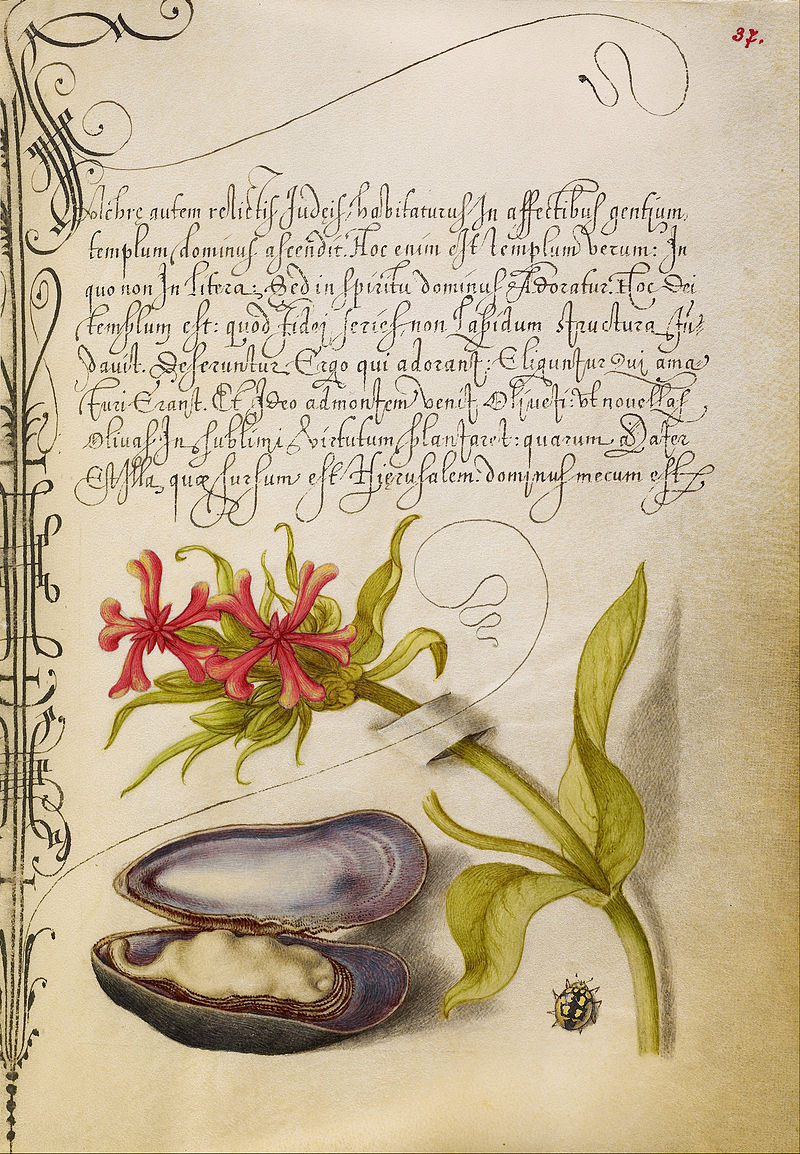 37.
autem relictis Judeis, habitaturus In affectibus gentium,
templum dominus ascendit. Hoc enim est templum verum: In
quo non In litera: Sed in spiritu dominus Adoratur. Hoc Dei
templum est: quod fidej series, non Lapidum structura fu-
davit. Deseruntur Ergo qui adorant: Eliguntur Qui ama
turi Erant. Et Ideo ad montem venit Oliveti: ut novellas
Olivas In sublimi virtutum plantaret: quarum Mater
Est Illa, quæ sursum est Hierusalem: dominus mecum est